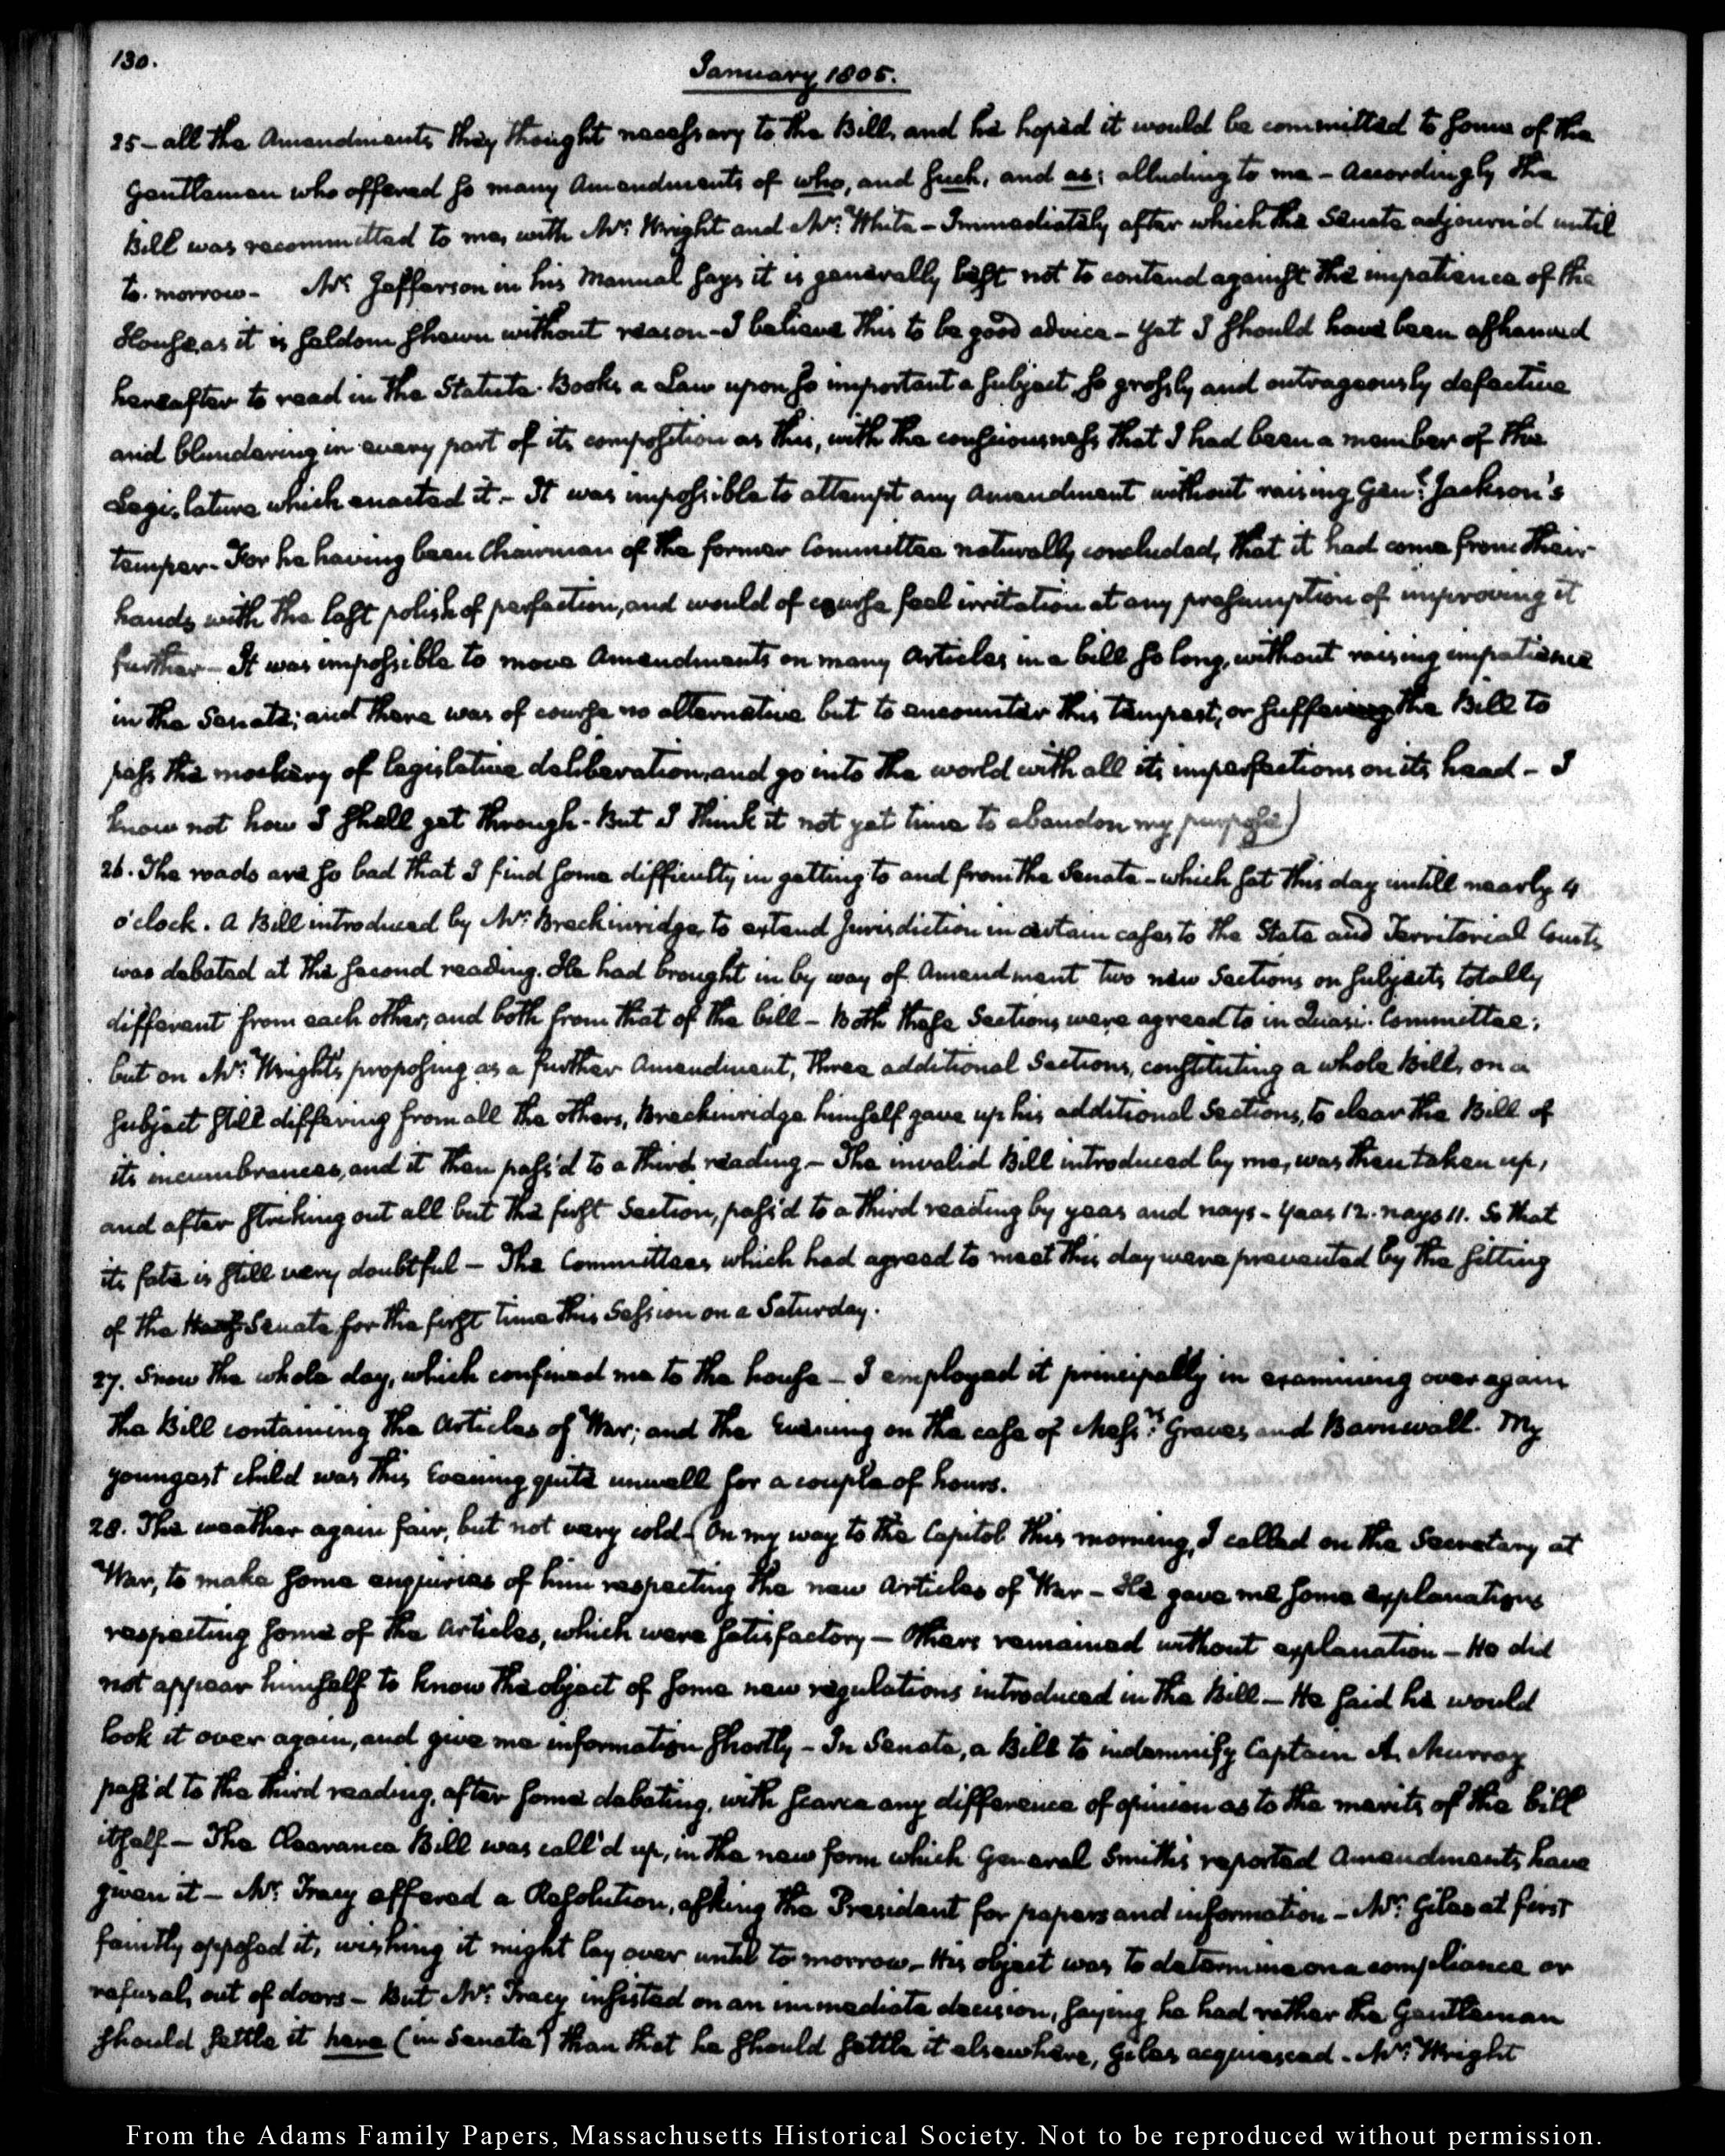 130.
January 1805.
25 - all the Amendments they thought necessary to the Bill, and he hoped it would be committed to some of the
Gentlemen who offered so many Amendments of who, and such, and as; alluding to me - Accordingly the
Bill was recommitted to me, with Mr: Wright and Mr: White - Immediately after which the Senate adjourn'd until
to-morrow - Mr: Jefferson in his Manual says it is generally best not to contend against the impatience of the
House, as it is seldom shewn without reason - I believe this to be good advice - Yet I should have been ashamed
hereafter to read in the Statute-Books a Law upon so important a subject, so grossly and outrageously defective
and blundering in every part of its composition as this, with the consciousness that I had been a member of the
Legislature which enacted it - It was impossible to attempt any Amendment without raising Genl: Jackson's
temper - For he having been Chairman of the former Committee naturally concluded, that it had come from their
hands with the last polish of perfection, and would of course feel irritation at any presumption of improving it
further - It was impossible to move Amendments on many Articles in a bill so long, without raising impatience
in the Senate; and there was of course no alternative but to encounter this tempest, or suffering the Bill to
pass the mockery of legislative deliberation, and go into the world with all its imperfections on its head - I
know not how I shall get through - But I think it not yet time to abandon my purpose)
26. The roads are so bad that I find some difficulty in getting to and from the Senate - which sat this day untill nearly 4
o'clock. A Bill introduced by Mr: Breckinridge, to extend Jurisdiction in certain cases to the State and Territorial Courts
was debated at the second reading. He had brought in by way of Amendment two new Sections on subjects totally
different from each other, and both from that of the bill - Both these Sections were agreed to in Quasi-Committee;
but on Mr: Wright's proposing as a further Amendment, three additional Sections, constituting a whole Bill, on a
subject still differing from all the others, Breckinridge himself gave up his additional Sections, to clear the Bill of
its incumbrances, and it then pass'd to a third reading - The invalid Bill introduced by me, was then taken up,
and after striking out all but the first Section, pass'd to a third reading by yeas and nays - Yeas 12. nays 11. So that
its fate is still very doubtful - The Committees which had agreed to meet this day were prevented by the sitting
of the Senate for the first time this Session on a Saturday.
27. Snow the whole day, which confined me to the house - I employed it principally in examining over again
the Bill containing the Articles of War; and the Evening on the case of Messrs: Graves and Barnwall. My
youngest child was this Evening quite unwell for a couple of hours.
28. The weather again fair, but not very cold - (On my way to the Capitol this morning, I called on the Secretary at
War, to make some enquiries of him respecting the new Articles of War - He gave me some explanations
respecting some of the Articles, which were satisfactory - Others remained without explanation - He did
not appear himself to know the object of some new regulations introduced in the Bill - He said he would
look it over again, and give me information shortly - In Senate, a Bill to indemnify Captain A. Murray
pass'd to the third reading, after some debating, with scarce any difference of opinion as to the merits of the bill
itself - The Clearance Bill was call'd up, in the new form which General Smith's reported Amendments have
given it - Mr: Tracy offered a Resolution, asking the President for papers and information - Mr: Giles at first
faintly opposed it, wishing it might lay over until to morrow - His object was to determine on a compliance or
refusal, out of doors - But Mr: Tracy insisted on an immediate decision, saying he had rather the Gentleman
should settle it here (in Senate) than that he should settle it elsewhere, Giles acquiesced - Mr: Wright
From the Adams Family Papers, Massachusetts Historical Society. Not to be reproduced without permission.